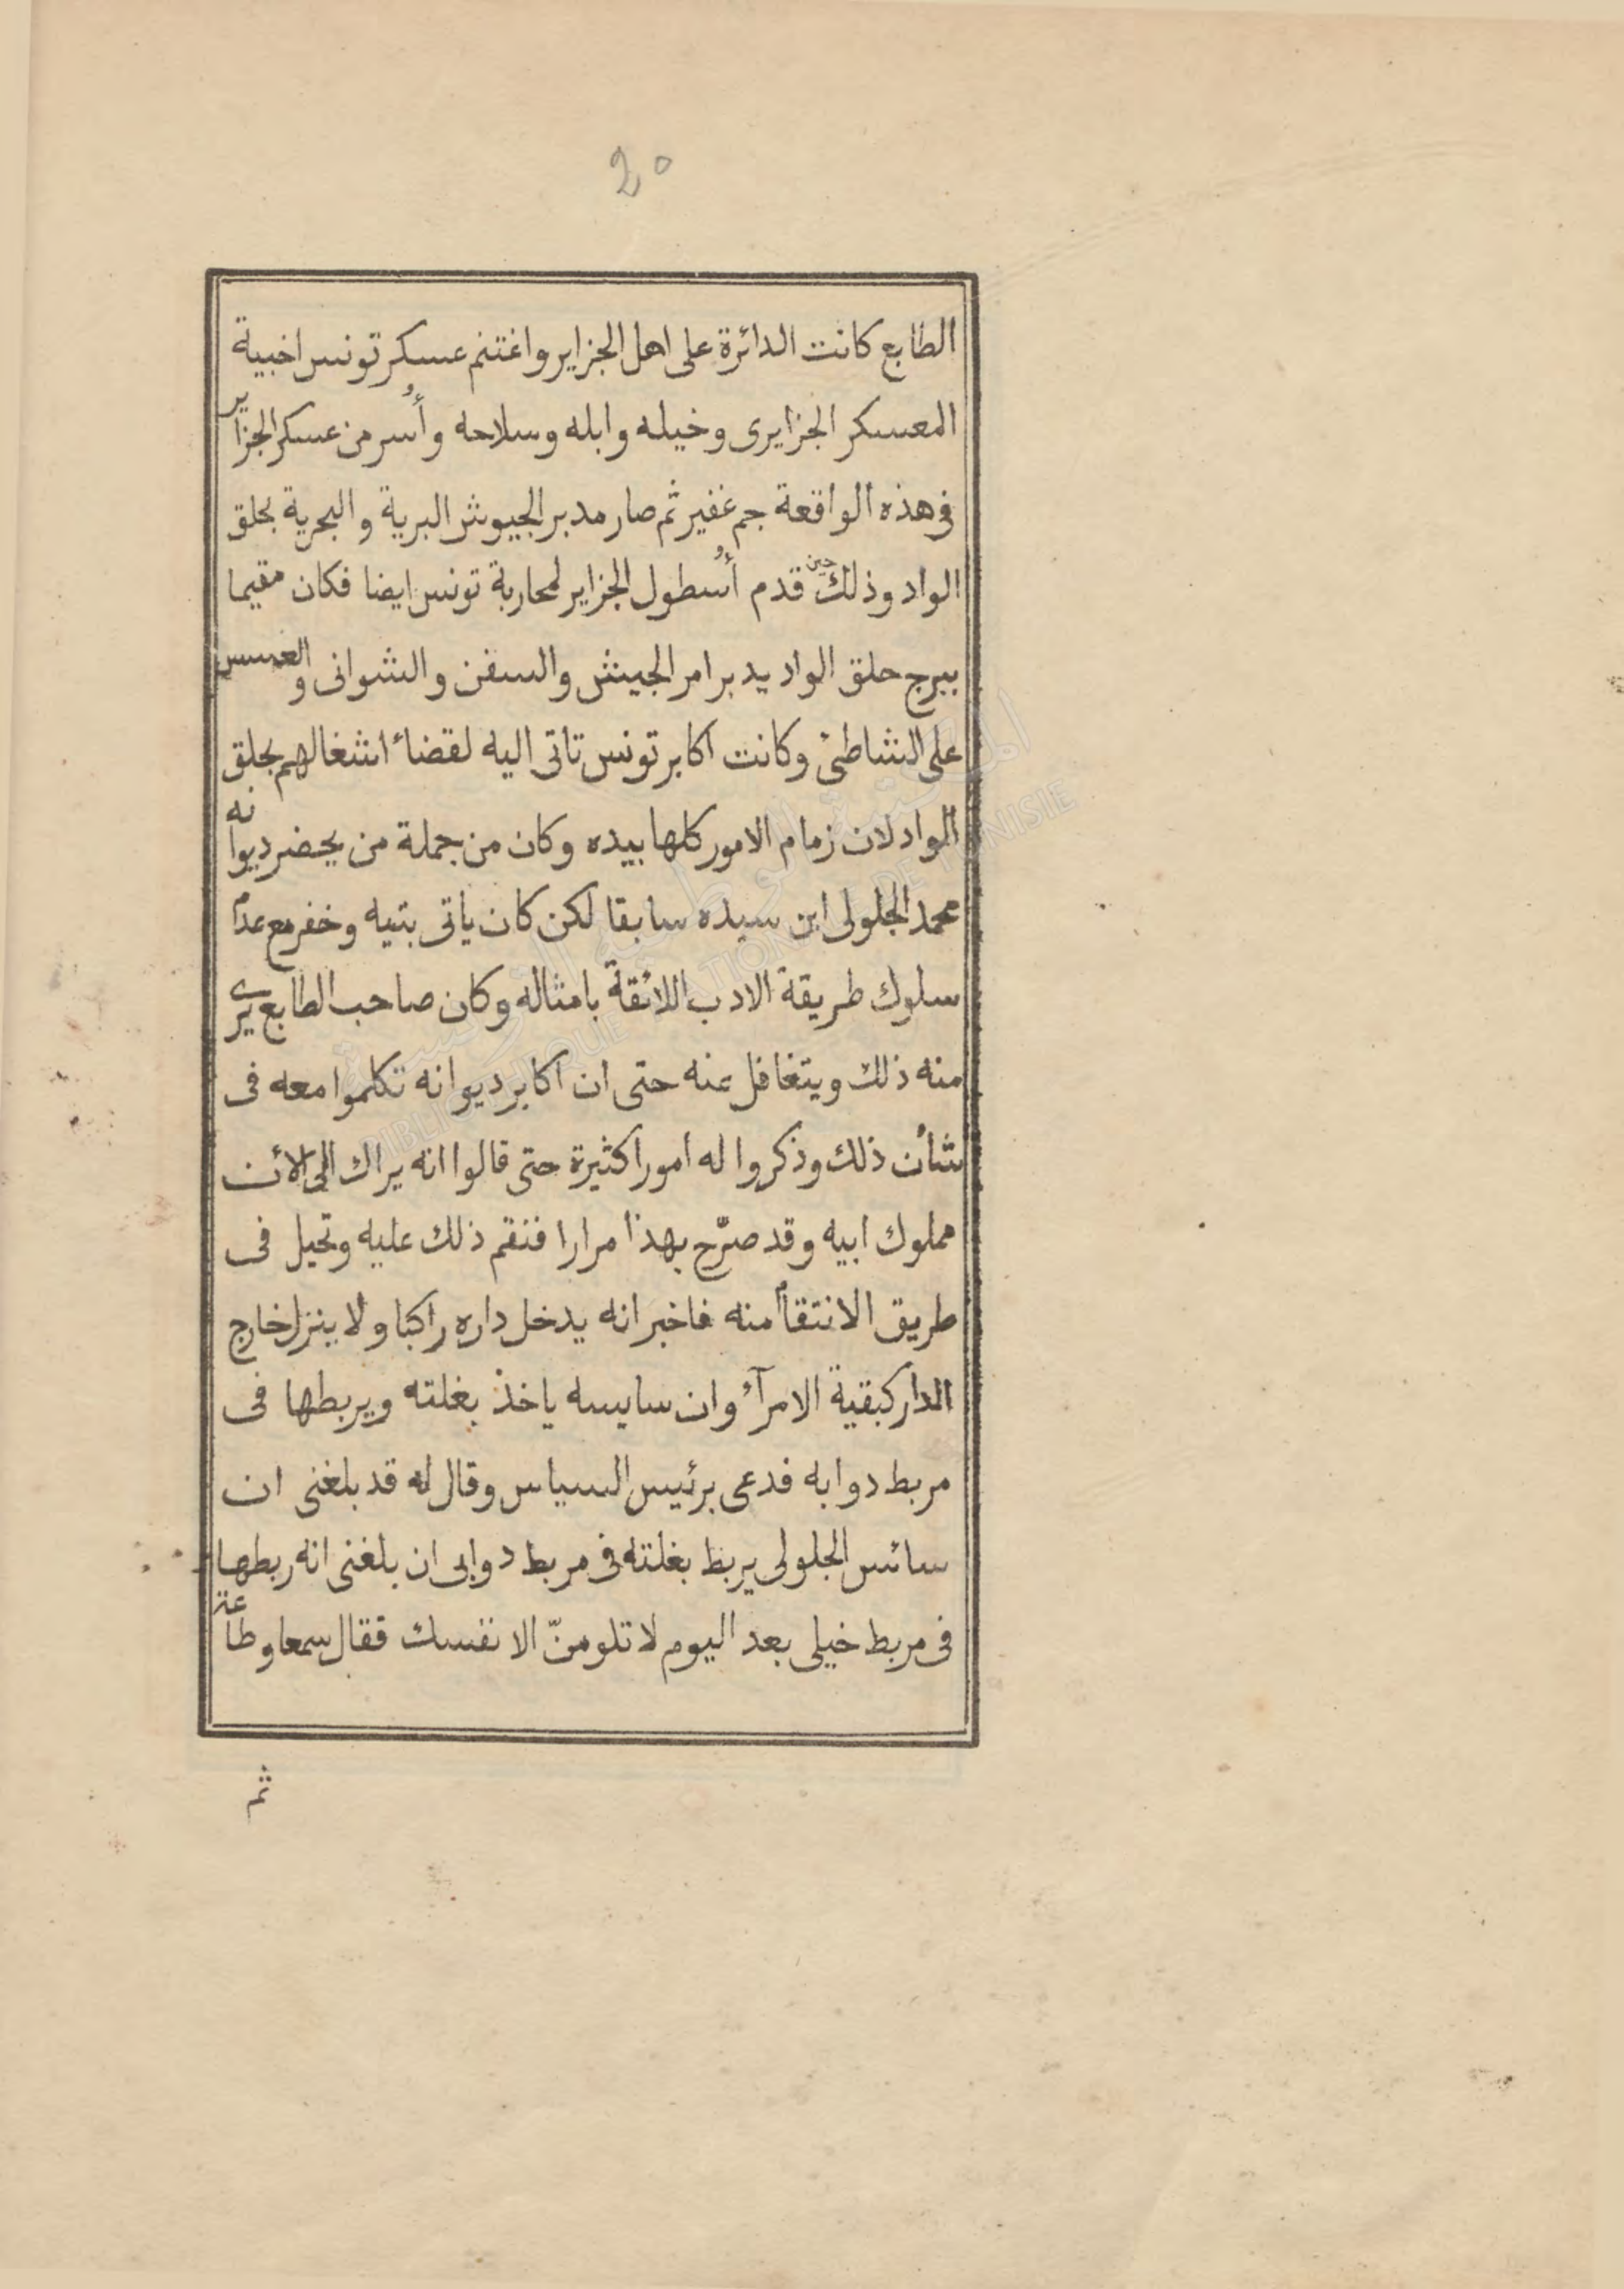 20
الطابع كانت الدائرة على اهل الجزاير واغتنم عسكر تونس اخبية
المعسكر الجزايرى وخيله وابله وسلاحه وأُسر من عسكر الجزاير
فى هذه الواقعة جم غفير ثم صار مدبر الجيوش البرية والبحرية بحلق
الواد وذلك حين قدم أُسطول الجزاير لمحاربة تونس ايضا فكان مقيما
ببرج حلق الواد يدبر امر الجيش والسفن والشوانى والعسس
على الشاطئ وكانت اكابر تونس تاتى اليه لقضاء اشغالهم بحلق
الواد لان زمام الامور كلها بيده وكان من جملة من يحضر ديوانه
محمد الجلولى ابن سيده سابقا لكن كان ياتى بتيه وخفر مع عدم
سلوك طريقة الادب اللائقة بامثاله وكان صاحب الطابع يرى
منه ذلك ويتغافل عنه حتى ان اكابر ديوانه تكلموا معه فى
شأن ذلك وذكروا له امورا كثيرة حتى قالوا انه يراك الى الائن
مملوك ابيه وقد صرّح بهذا مرارا فنقم ذلك عليه وتحيل فى
طريق الانتقام منه فاخبر انه يدخل داره راكبا ولا ينزل خارج
الدار كبقية الامرآء وان سايسه ياخذ بغلته ويربطها فى
مربط دوابه فدعى برئيس السياس وقال له قد بلغنى ان
سائس الجلولى يربط بغلته فى مربط دوابى ان بلغنى انه ربطها
فى مربط خيلى بعد اليوم لا تلومنّ الا نفسك فقال سمعا وطاعة
ثم
المكتبة الوطنية التونسية
BIBLIOTHEQUE NATIONALE DE TUNISIE